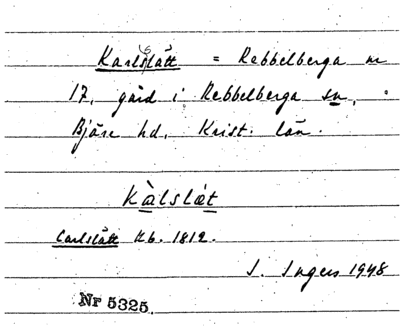 Karlslätt = Rebbelberga nr
17, gård i Rebbelberga sn,
Bjäre hd, Krist. län.
Kàlslæ̀t
Carlslätt Kb. 1812.
I. Ingers 1948
Nr 5325.